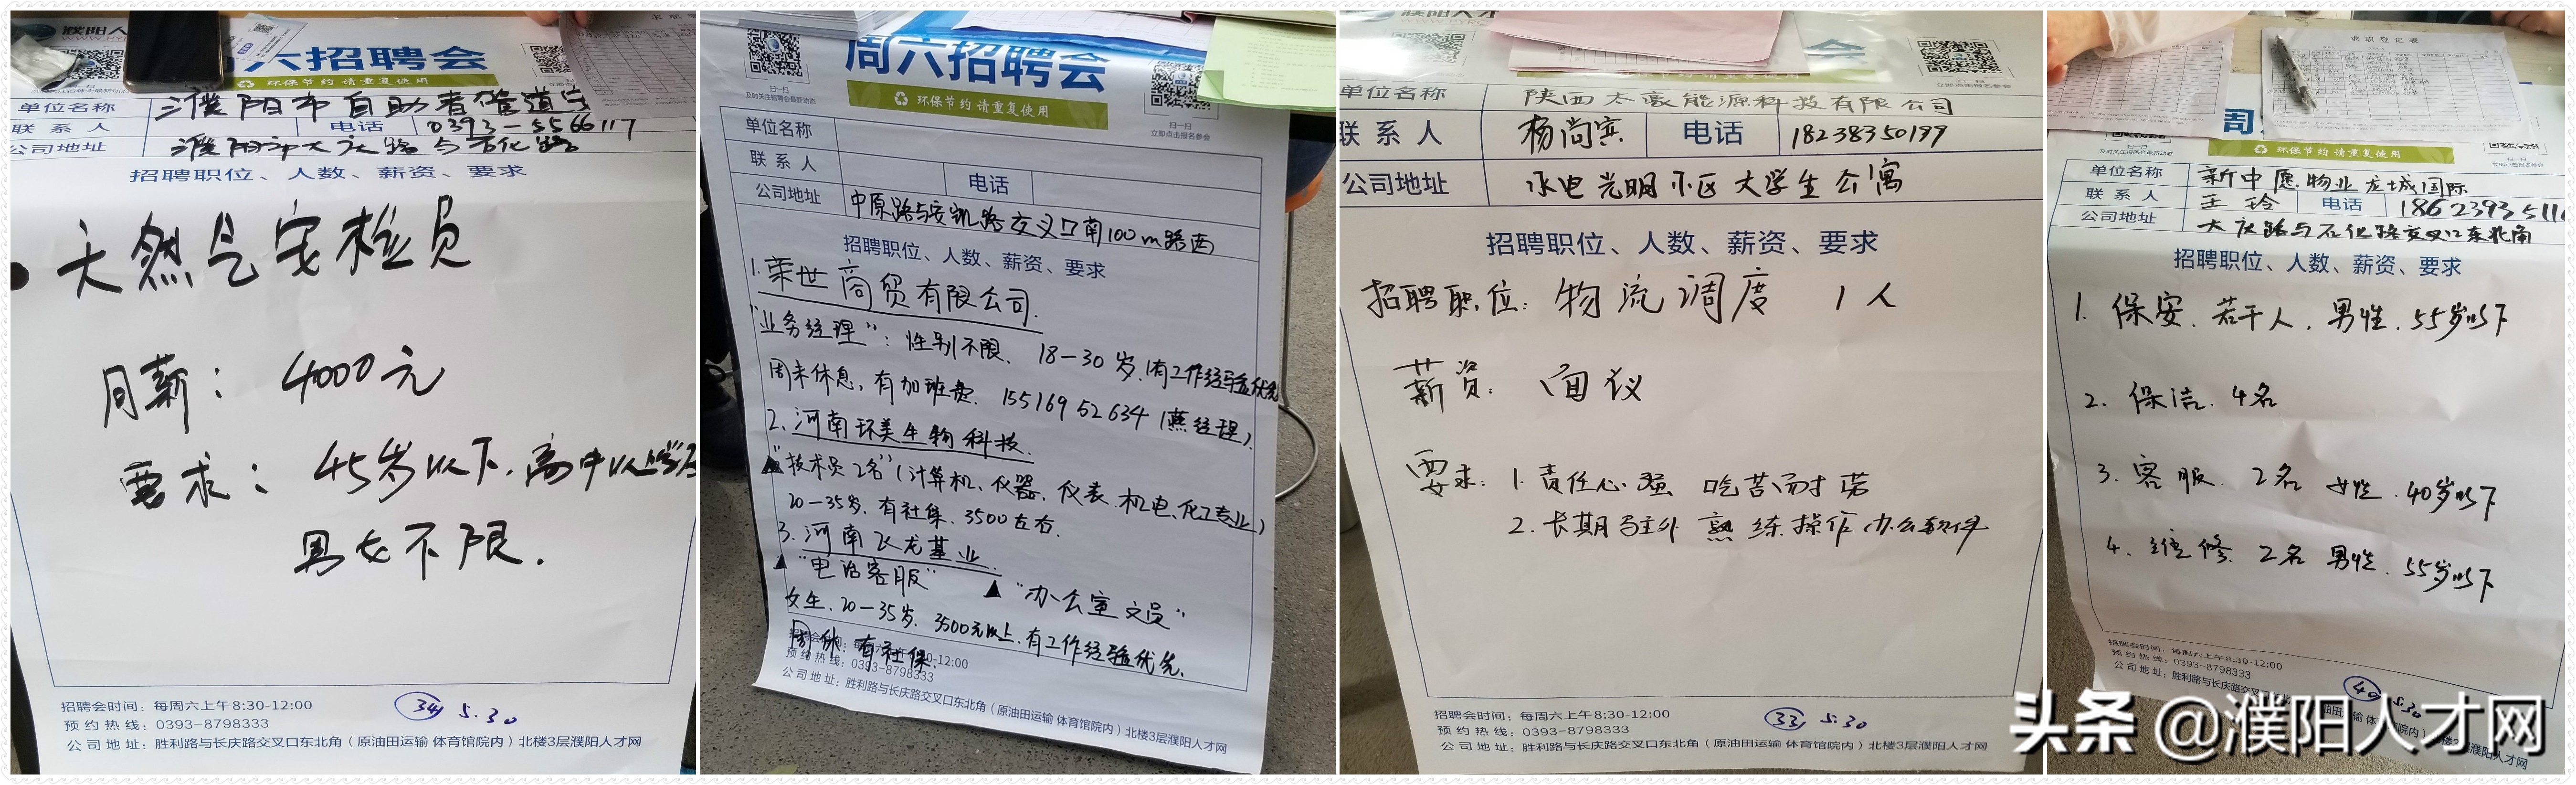 濮阳人
周六招聘会
环保节约 请重复使用
单位名称 濮阳市自助者管道
联系人 电话 0393-5566117
公司地址 濮阳市大庆路与石化路
招聘职位、人数、薪资、要求
天然气安检员
月薪: 4000元
要求: 45岁以下,高中以上学历
男女不限.
招聘会时间:每周六上午8:30-12:00
预约热线:0393-8798333
公司地址:胜利路与长庆路交叉口东北角(原油田运输 体育馆院内)北楼3层濮阳人才网
34 5.30
周六招聘会
扫一扫
及时关注招聘会最新动态
环保节约 请重复使用
扫一扫
立即点击报名参会
单位名称
联系人 电话
公司地址 中原路与安凯路交叉口南100m路西
招聘职位、人数、薪资、要求
1.荣世商贸有限公司.
"业务经理":性别不限、18-30岁,(有工作经验优先
周末休息,有加班费. 15516952634(燕经理).
2.河南环美生物科技.
▲"技术员2名"(计算机、仪器、仪表、机电、化工专业)
20-35岁,有社保、3500左右.
3.河南飞龙基业.
▲"电话客服" ▲"办公室文员"
女生、20-35岁、3500元以上、有工作经验优先.
周休、有社保.
招聘会时间:每周六上午8:30-12:00
预约热线:0393-8798333
公司地址:胜利路与长庆路交叉口东北角(原油田运输 体育馆院内)北楼3层濮阳人才网
濮阳人才
WWW.PYRC
扫一扫
立即点击报名参会
单位名称 陕西太豪能源科技有限公司
联系人 杨尚宾 电话 18238350199
公司地址 水电光明小区大学生公寓
招聘职位、人数、薪资、要求
招聘职位:物流调度 1人
薪资: 面议
要求: 1.责任心强 吃苦耐劳
2.长期驻外 熟练操作办公软件
招聘会时间:每周六上午8:30-12:00
预约热线:0393-8798333
公司地址:胜利路与长庆路交叉口东北角(原油田运输 体育馆院内)北楼3层濮阳人才网
33 5.30
求职登记表
周
环保节约 请重复使用
单位名称 新中愿物业龙城国际
联系人 王玲 电话 1862393511
公司地址 大庆路与石化路交叉口东北角
招聘职位、人数、薪资、要求
1. 保安. 若干人. 男性. 55岁以下
2. 保洁. 4名
3. 客服. 2名 女性. 40岁以下
4. 维修. 2名 男性. 55岁以下
招聘会时间:每周六上午8:30-12:00
预约热线:0393-8798333
公司地址:胜利路与长庆路交叉口东北角(原油田运输 体育馆院内)北楼3层濮阳人才网
40 5.30
头条 @濮阳人才网